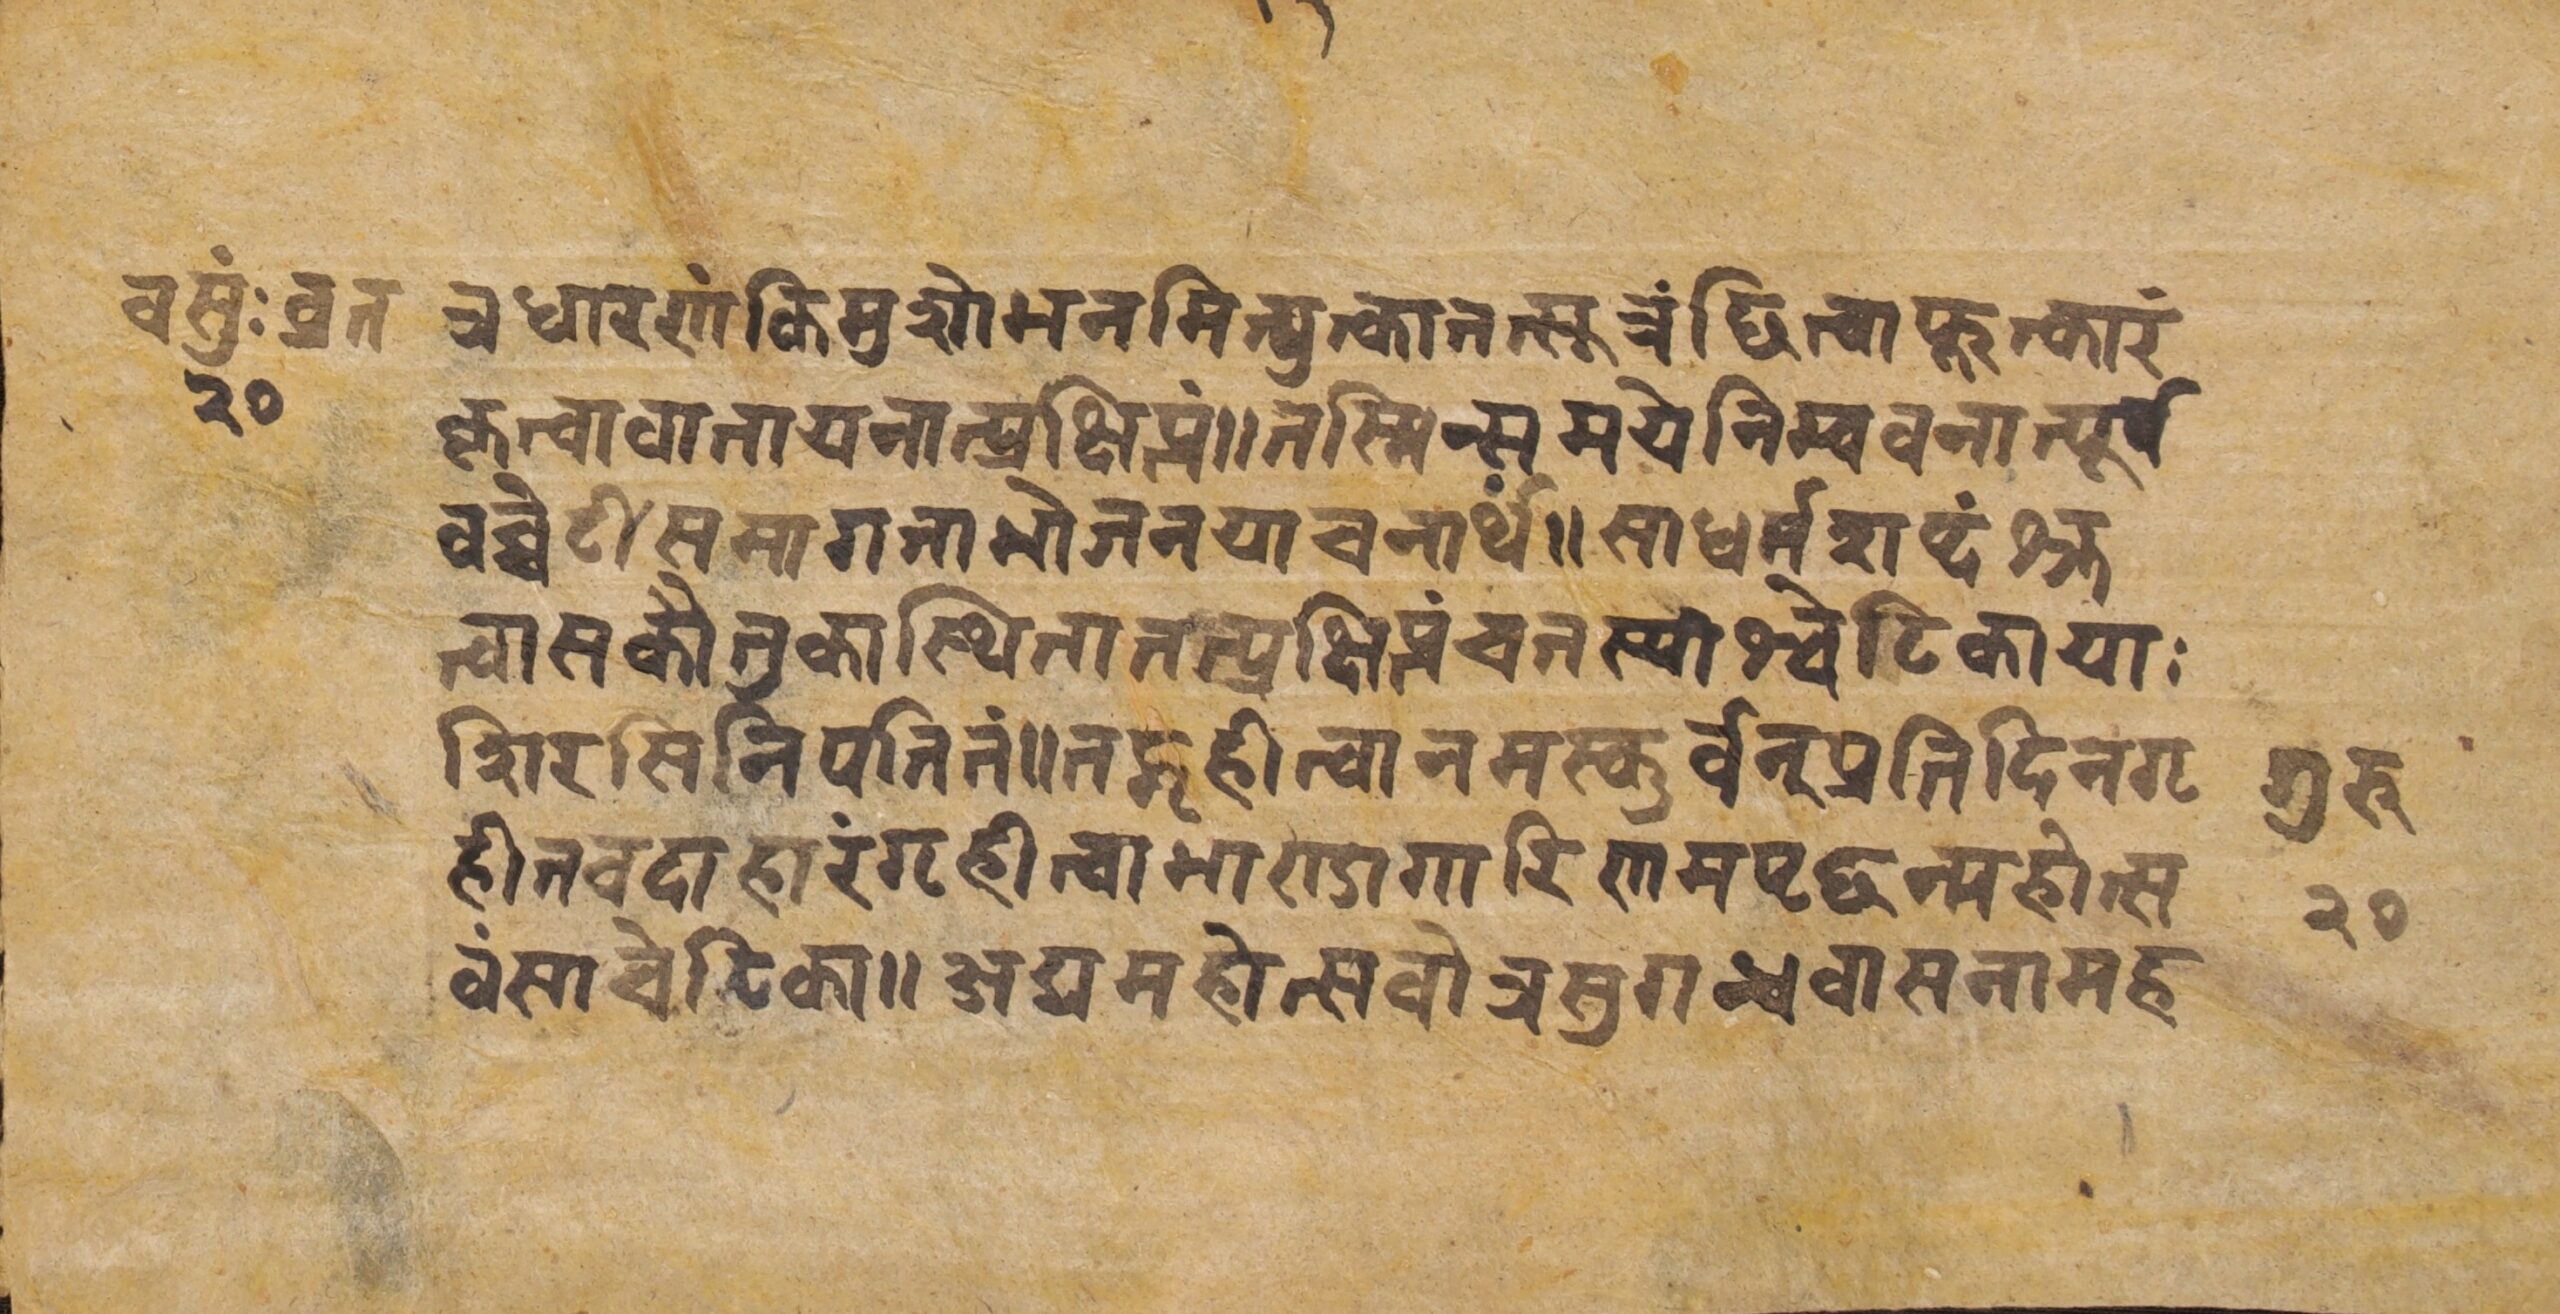 वसुं: व्रत
२०
त्रधारणं किमुशोभनमित्युत्कातत्सूत्रंछित्वाफूत्कारं
कृत्वावातायनात्प्रक्षिप्तं॥तस्मिन्समयेनिम्बवनात्पूर्व
वच्चेटीसमागताभोजनयाचनार्थं॥साधर्मशब्दंश्रु
त्वासकौतुकास्थितातत्प्रक्षिप्तंचतस्याश्चेटिकायाः
शिरसिनिपतितं॥तद्गृहीत्वानमस्कुर्वन्प्रतिदिनगृ
हीतवदाहारंगृहीत्वाभाण्डागारिणमपृछन्महोत्स
वंसाचेटिका॥अद्यमहोत्सवोत्रसुगन्धवासनामह
गुरु
२०